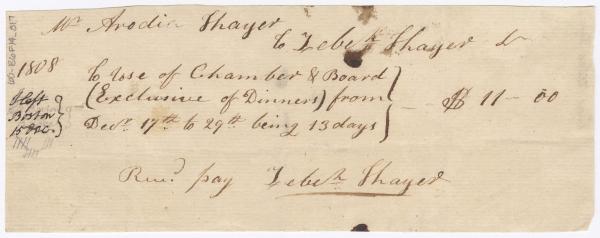 Mr Arodi Thayer
To Zebeh Thayer Dr
1808
To Use of Chamber & Board
(Exclusive of Dinners) from
Decr 17th to 29th being 13 days
$ 11-00
I left
Boston
15 Dec.
Recd pay Zebeh Thayer